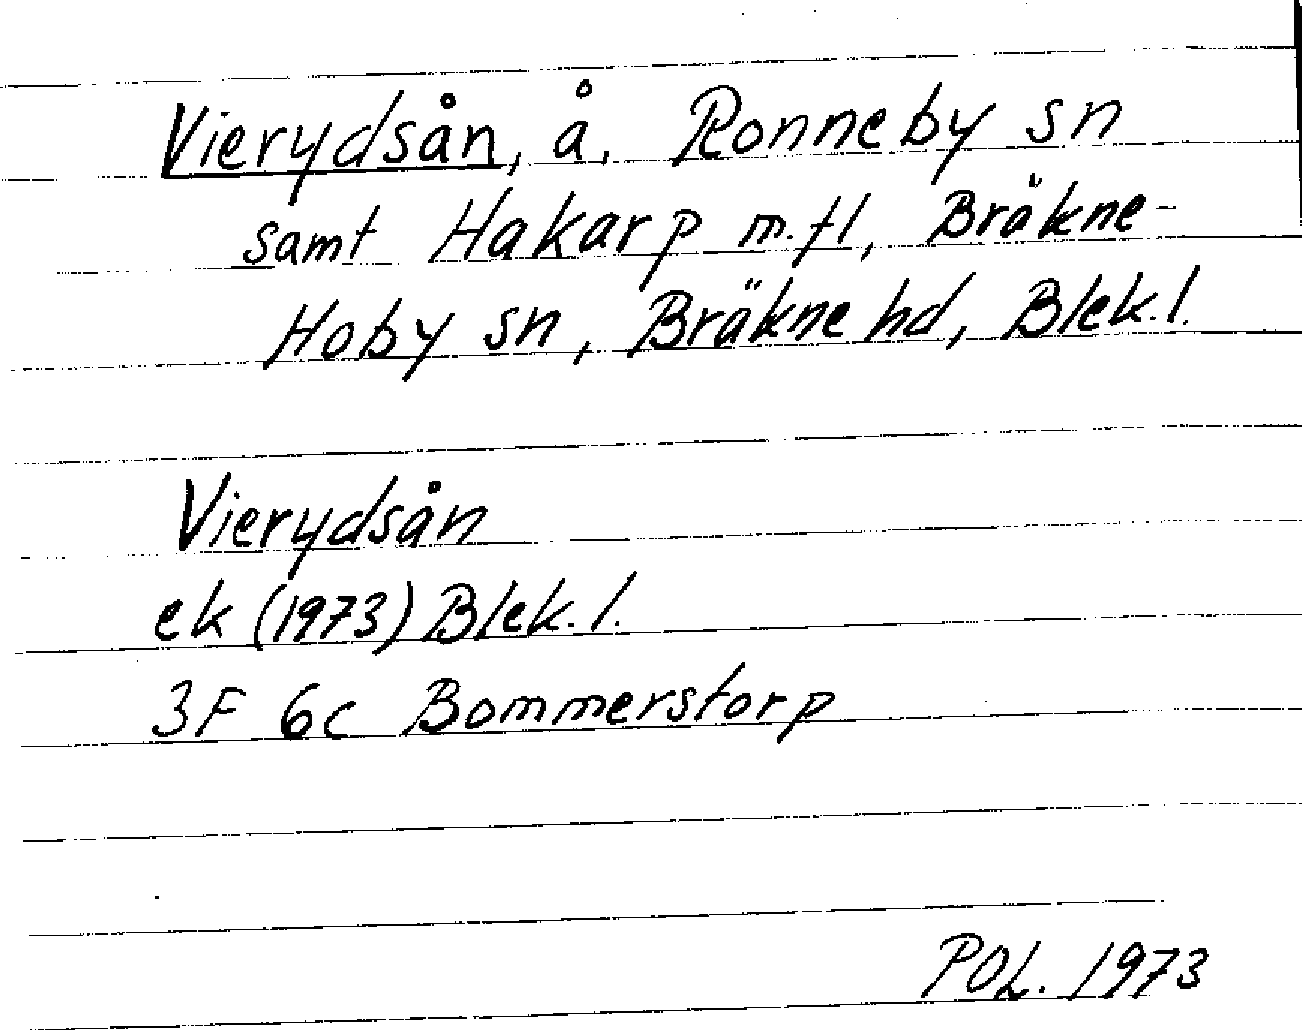 Vierydsån, å, Ronneby sn
samt Hakarp m.fl, Bräkne-
Hoby sn, Bräkne hd, Blek.l.
Vierydsån
ek (1973) Blek.l.
3F 6c Bommerstorp
POL. 1973